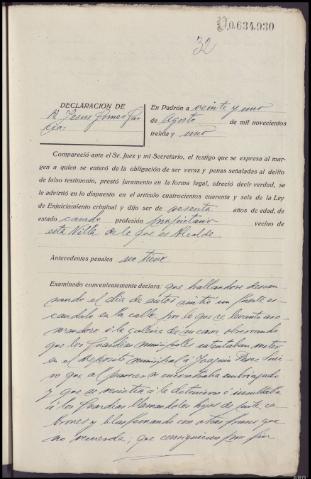 0.634.930
32
DECLARACIÓN DE
En Padrón a veinte y uno
de Agosto de mil novecientos
treinta y uno
Compareció ante el Sr. Juez y mi Secretario, el testigo que se expresa al mar-
gen a quien se enteró de la obligación de ser veraz y penas señaladas al delito
de falso testimonio, prestó juramento en la forma legal, ofreció decir verdad, se
le advirtió en lo dispuesto en el artículo cuatrocientos cuarenta y seis de la Ley
de Enjuiciamiento criminal y dijo ser de sesenta años de edad, de
estado casado profesión propietario vecino de
esta Villa de la que es Alcalde
Antecedentes penales no tiene
Examinado convenientemente declara: que hallandose
el dia de autos un fuerte es-
candalo en la calle por lo que
a la galeria de su casa observando
que los Guardias municipales intentaban meter
en el deposito municipal a Joaquin
que al parecer se encontraba embriagado
y que se resistia a la detencion e insultaba
a los Guardias llamandoles hijos de puta, ca-
brones y blasfemando con otras frases que
no recuerda, que consiguieron por fin